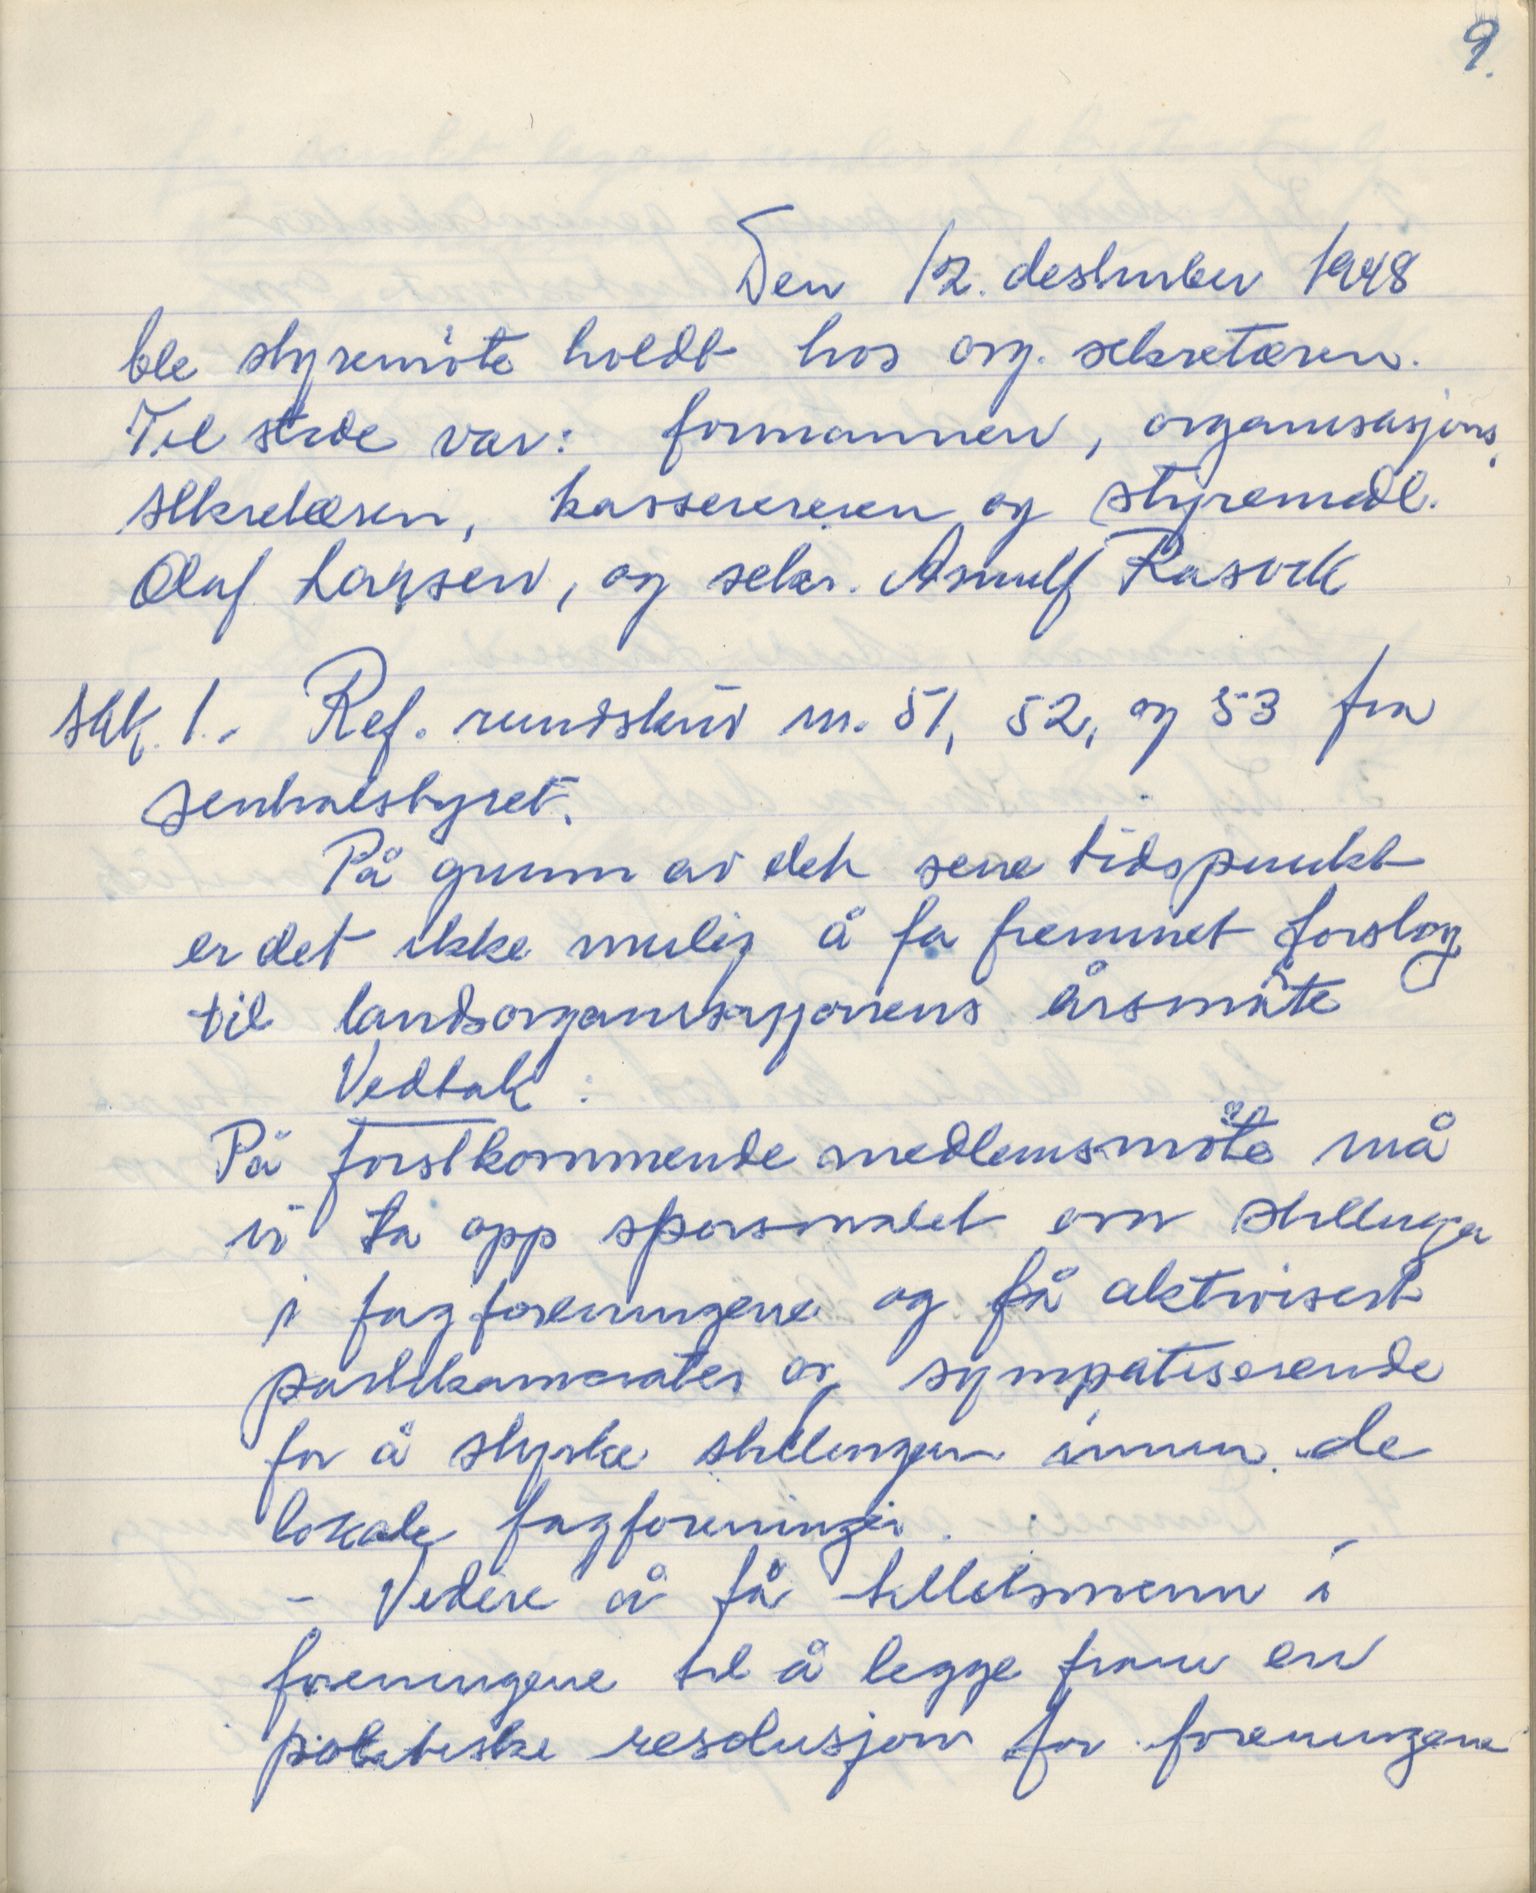 9.
Den 12. desember 1948
ble styremöte holdt hos org. sekretæren.
Til stede var: formannen, organisasjons
sekretæren, kassereren og styremedl.
Olaf Larsen, og sekr. Arnulf Rasvik
sak. 1. Ref. rundskriv nr. 51, 52, og 53 fra
sentralstyret.
På grunn av det sene tidspunkt
er det ikke mulig å fa fremmet forslag
til landsorganisasjonens årsmöte
Vedtak:
På forstkommende medlemsmöte må
vi ta opp sporsmalet om stillinga
i fagforeningene og få aktivisert
partikamerater og sympatiserende
for å styrke stillingen innen de
lokale fagforeninger.
- Videre å få tillitsmenn i
foreningene til å legge fram en
politiske resolusjon for foreningene